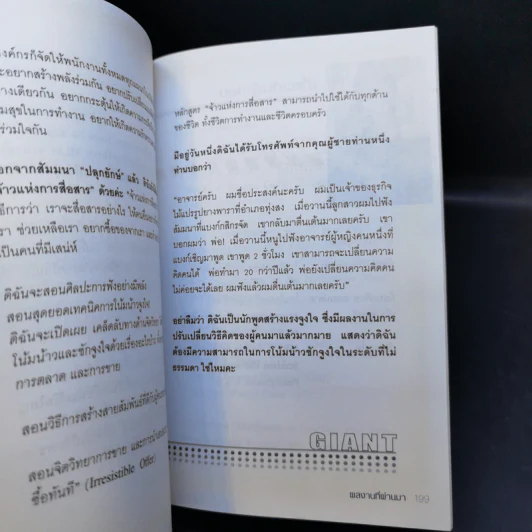 องค์กรก็จัดให้พนักงานทั้งหมด
อยากสร้างพลังร่วมกัน อยากปรับ
างเดียวกัน อยากกระตุ้นให้เกิด
มสุขในการทำงาน อยากให้เกิดความ
ร่วมใจกัน
อกจากสัมมนา "ปลุกยักษ์" แล้ว
จ้าวแห่งการสื่อสาร" ด้วยค่ะ
ธีการว่า เราจะสื่อสารอย่างไร ให้คน
รา ช่วยเหลือเรา อยากซื้อของจากเรา
เป็นคนที่มีเสน่ห์
ดิฉันจะสอนศิลปะการฟังอย่างมีพลัง
สอนสุดยอดเทคนิคการโน้มน้าวจูงใจ
ดิฉันจะเปิดเผย เคล็ดลับทางด้านจิตวิทยา
โน้มน้าวและชักจูงใจด้วยเรื่อง
การตลาด และการขาย
สอนวิธีการสร้างสายสัมพันธ์ที่ดีกับ
สอนจิตวิทยาการขาย และการนำเสนอ
ซื้อทันที" (Irresistible Offer)
หลักสูตร "จ้าวแห่งการสื่อสาร" สามารถนำไปใช้ได้กับทุกด้าน
ของชีวิต ทั้งชีวิตการทำงานและชีวิตครอบครัว
มีอยู่วันหนึ่งดิฉันได้รับโทรศัพท์จากคุณผู้ชายท่านหนึ่ง
ท่านบอกว่า
"อาจารย์ครับ ผมชื่อประสงค์นะครับ ผมเป็นเจ้าของธุรกิจ
ไม้แปรรูปยางพาราที่อำเภอทุ่งสง เมื่อวานนี้ลูกสาวผมไปฟัง
สัมมนาที่แบงก์กสิกรจัด เขากลับมาตื่นเต้นมากเลยครับ เขา
บอกผมว่า พ่อ! เมื่อวานนี้หนูไปฟังอาจารย์ผู้หญิงคนหนึ่งที่
แบงก์เชิญมาพูด เขาพูด 2 ชั่วโมง เขาสามารถจะเปลี่ยนความ
คิดคนได้ พ่อทำมา 20 กว่าปีแล้ว พ่อยังเปลี่ยนความคิดคน
ไม่ค่อยจะได้เลย ผมฟังแล้วผมตื่นเต้นมากเลยครับ"
อย่าลืมว่า ดิฉันเป็นนักพูดสร้างแรงจูงใจ ซึ่งมีผลงานในการ
ปรับเปลี่ยนวิธีคิดของผู้คนมาแล้วมากมาย แสดงว่าดิฉัน
ต้องมีความสามารถในการโน้มน้าวชักจูงใจในระดับที่ไม่
ธรรมดา ใช่ไหมคะ
GIANT
ผลงานที่ผ่านมา 199